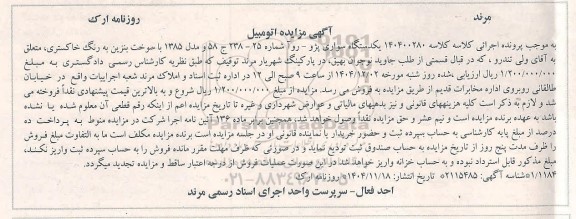 مرند
روزنامه ارک
آگهی مزایده اتومبیل
به موجب پرونده اجرائی کلاسه کلاسه ۱۴۰۴۰۰۲۸۰ یکدستگاه سواری پژو - روا شماره ۲۵ - ۲۳۸ ج ۵۸ و مدل ۱۳۸۵ با سوخت بنزین به رنگ خاکستری، متعلق
به آقای ولی تندرو ، که در قبال قسمتی از طلب جاوید بوجران بهین، در پارکینگ شهریار مرند توقیف که طبق نظریه کارشناس رسمی دادگستری به مبلغ
۱/۲۰۰/۰۰۰/۰۰۰ ریال ارزیابی شده روز شنبه مورخه ۱۴۰۴/۱۲/۰۲ از ساعت ۹ صبح الی ۱۲ در اداره ثبت اسناد و املاک مرند شعبه اجراییات واقع در خیابان
طالقانی روبروی اداره مخابرات قدیم از طریق مزایده به فروش می رسد. مزایده از مبلغ ۱/۲۰۰/۰۰۰/۰۰۰ ریال شروع و به بالاترین قیمت پیشنهادی نقداً فروخته می
شد و لازم به ذکر است کلیه هزینههای قانونی و نیز بدهیهای مالیاتی و عوارض شهرداری و غیره تا تاریخ مزایده اعم از اینکه رقم قطعی آن معلوم شده یا نشده
باشد به عهده برنده مزایده است و نیم عشر و حق مزایده نقداً وصول خواهد شد. همچنین برابر ماده ۱۳۶ آئین نامه اجرا شرکت در مزایده منوط به پرداخت ده
درصد از مبلغ پایه کارشناسی به حساب سپرده ثبت و حضور خریدار یا نماینده قانونی او در جلسه مزایده است برنده مزایده مکلف است ما به التفاوت مبلغ فروش
را ظرف مدت پنج روز از تاریخ مزایده به حساب صندوق ثبت تودیع نماید و در صورتی که ظرف مهلت مقرر مانده فروش را به حساب سپرده ثبت واریز نکند،
مبلغ مذکور قابل استرداد نبوده و به حساب خزانه واریز خواهد شد در این صورت عملیات فروش از درجه اعتبار ساقط و مزایده تجدید میگردد.
۱/۱۱۸۴ *شناسه آگهی: ۲۱۱۵۴۸۵* تاریخ انتشار: ۱۴۰۴/۱۱/۱۸* روزنامه ارک
احد فعال- سرپرست واحد اجرای اسناد رسمی مرند